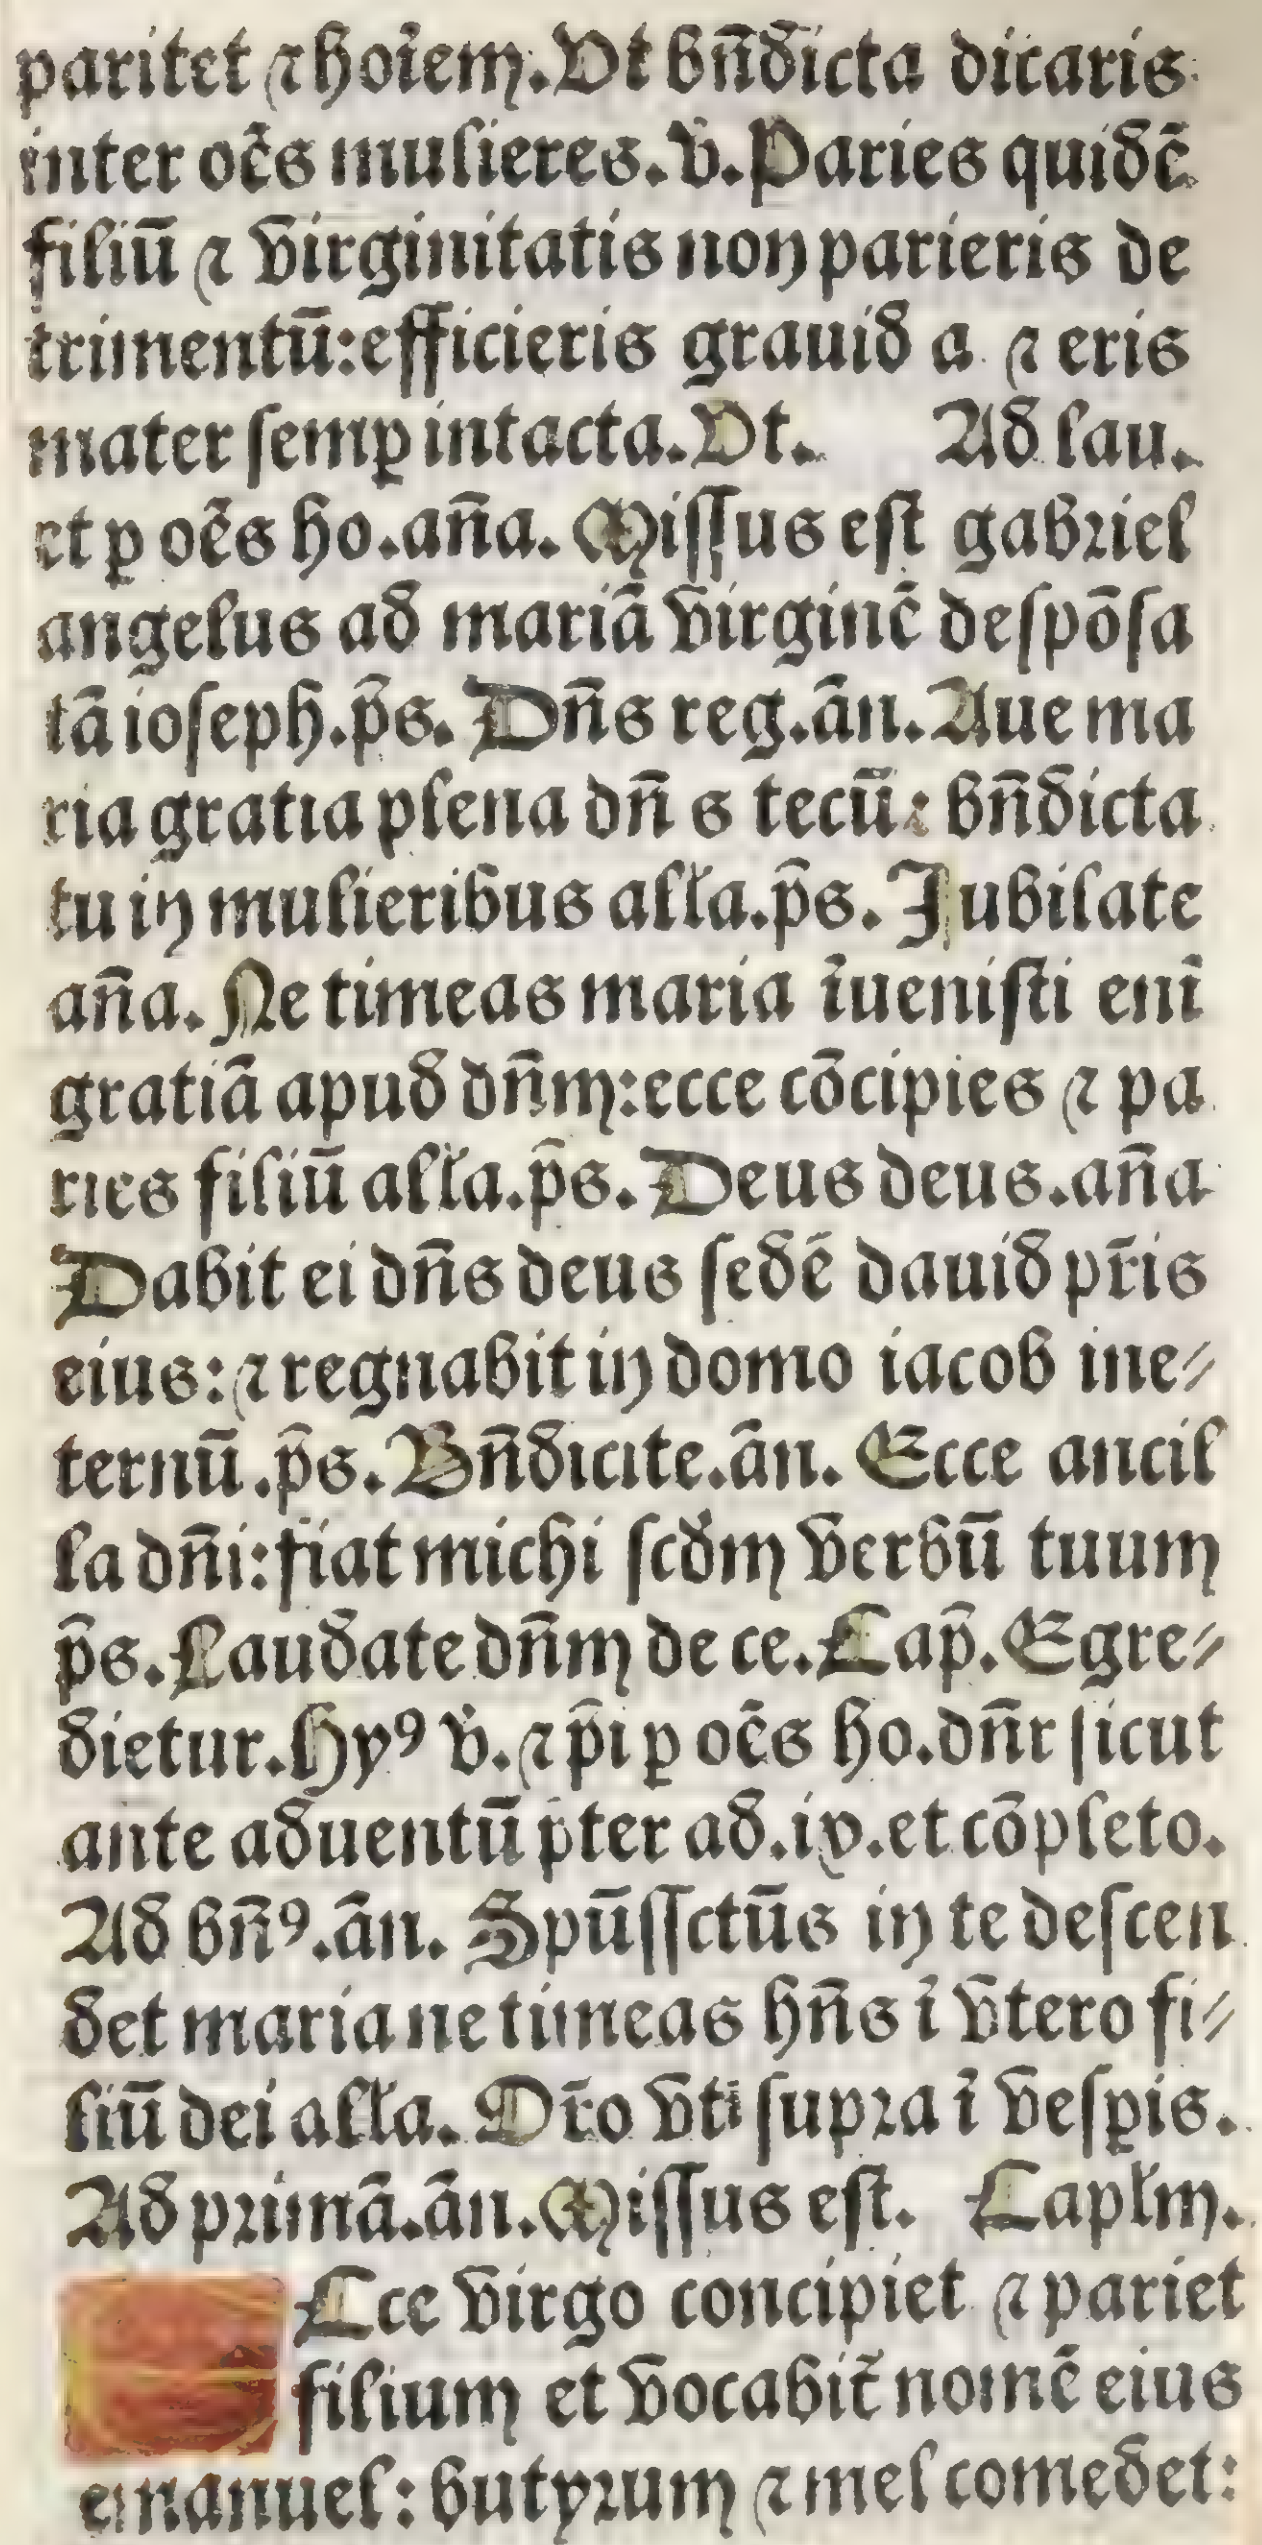 paritet ⁊ hoīem. Ut bn̄dicta dicaris
inter oēs mulieres. v̄. Paries quidē
filiū ⁊ virginitatis non parieris de
trimentū: efficieris grauid a ⁊ eris
mater semꝑ intacta. Ut. Ad lau.
et ꝑ oēs ho. an̄a. Missus est gabriel
angelus ad mariā virginē despōsa
tā ioseph. p̄s. Dn̄s reg. ān. Aue ma
ria gratia plena dn̄ s tecū: bn̄dicta
tu in mulieribus alła. p̄s. Jubilate
an̄a. Ne timeas maria īuenisti enī
gratiā apud dn̄m: ecce cōcipies ⁊ pa
ries filiū alła. p̄s. Deus deus. an̄a
Dabit ei dn̄s deus sedē dauid pr̄is
eius: ⁊ regnabit in domo iacob ine⸗
ternū. p̄s. Bn̄dicite. ān. Ecce ancil
la dn̄i: fiat michi scd̄m verbū tuum
p̄s. Laudate dn̄m de ce. Cap̄. Egre⸗
dietur. Hyꝰ v̄. ⁊ p̄i ꝑ oēs ho. dn̄r sicut
ante aduentū p̄ter ad. ix. et cōpleto.
Ad bn̄ꝰ. ān. Spūssctūs in te descen
det maria ne timeas hn̄s ī vtero fi⸗
liū dei alła. Or̄o vti supra ī vesꝑis.
Ad primā. ān. Missus est. Capłm.
Ecce virgo concipiet ⁊ pariet
filium et vocabit̄ nomē eius
emanuel: butyrum ⁊ mel comedet: